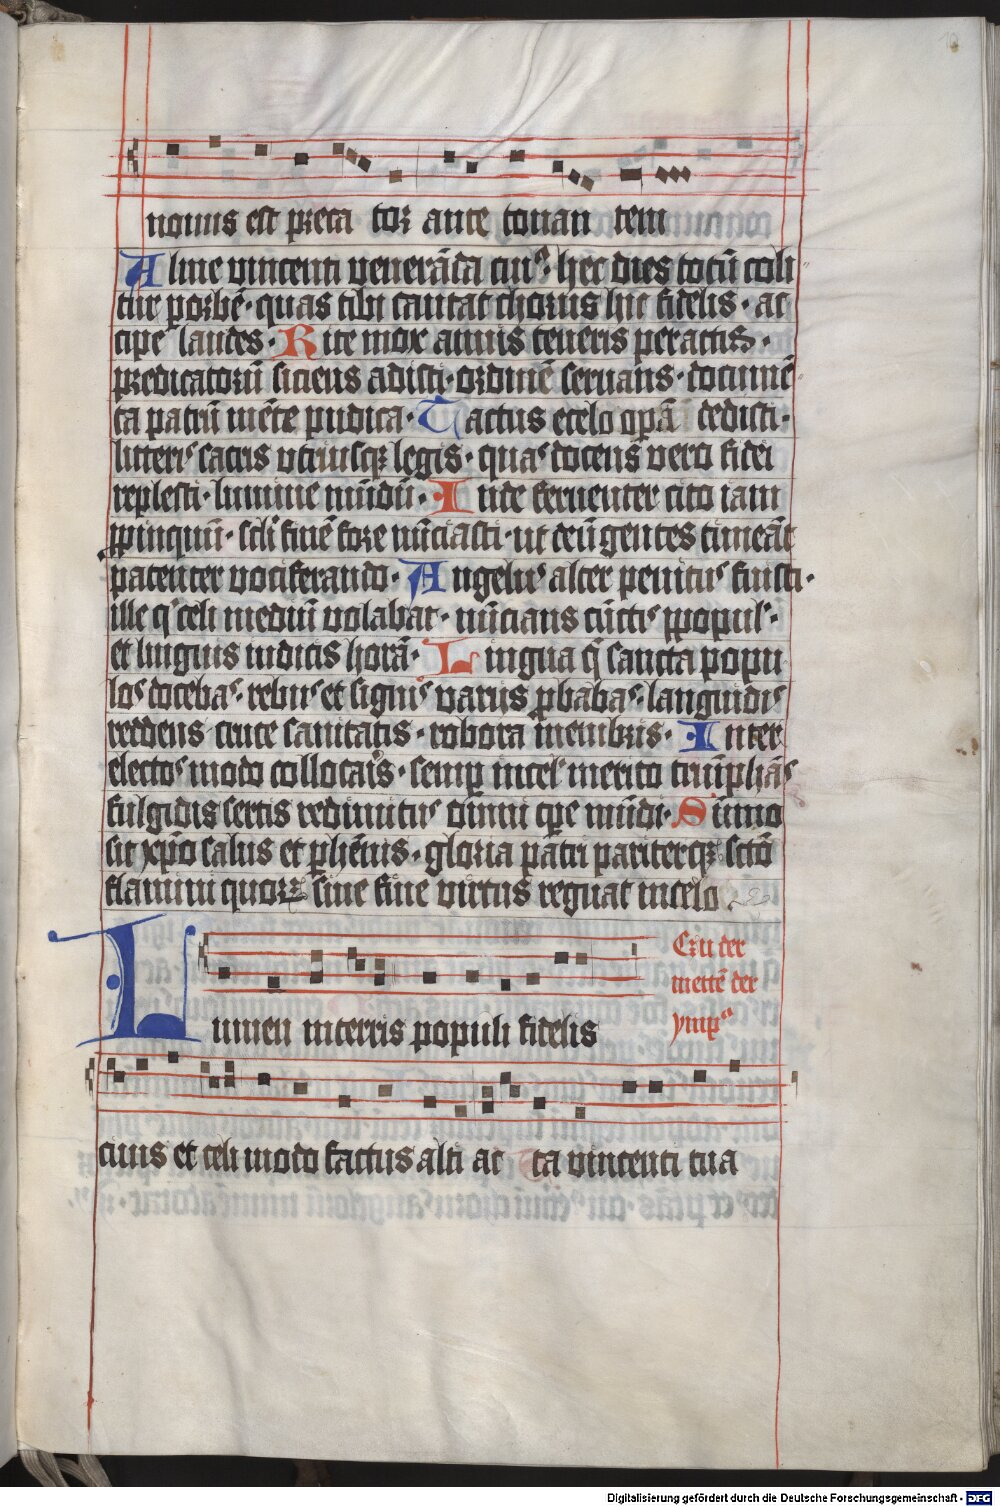 nouus est preca tor ante tonan tem
Alme vincenti veneranda cuiꝰ · hec dies totū coli
tur p orbē · quas tibi cantat chorus hic fidelis · ac
cipe laudes · Rite mox annis teneris peractis ·
predicatorū siciens adisti · ordinē seruans · documē
ta patrū mēte pudica · Tactus e celo opā dedisti ·
litteris sacris utriusqꝫ legis · quas docens vero fidei
replesti · lumine mūdū · Inde feruenter cito iam
ꝓpinquū · scli finē fore nūciasti · ut deū gentes timeāt
patenter vociferando · Angelus alter penitus fuisti ·
ille q celi mediū volabat · nūcians cūctis ppopulis ·
et linguis iudicis horā · Lingua q̄ sancta popu
los docebas · rebus et signis variis ꝓbabas · languidis
reddens cruce sanitatis · robora membris · Inter
electos modo collocaris · semp in celis merito triūphās
fulgidis sertis redimitus omni tpe mūdi · Sūmo
sit xp̄o salus et phēnis · gloria patri pariterqꝫ sctō
flamini quorꝝ sine fine virtus regnat in celo ·
Lumen in terris populi fidelis
Czu der
mettē der
ymp̄ꝰ
ciuis et celi modo factus alti ac ta vincenti tua
Digitalisierung gefördert durch die Deutsche Forschungsgemeinschaft - DFG